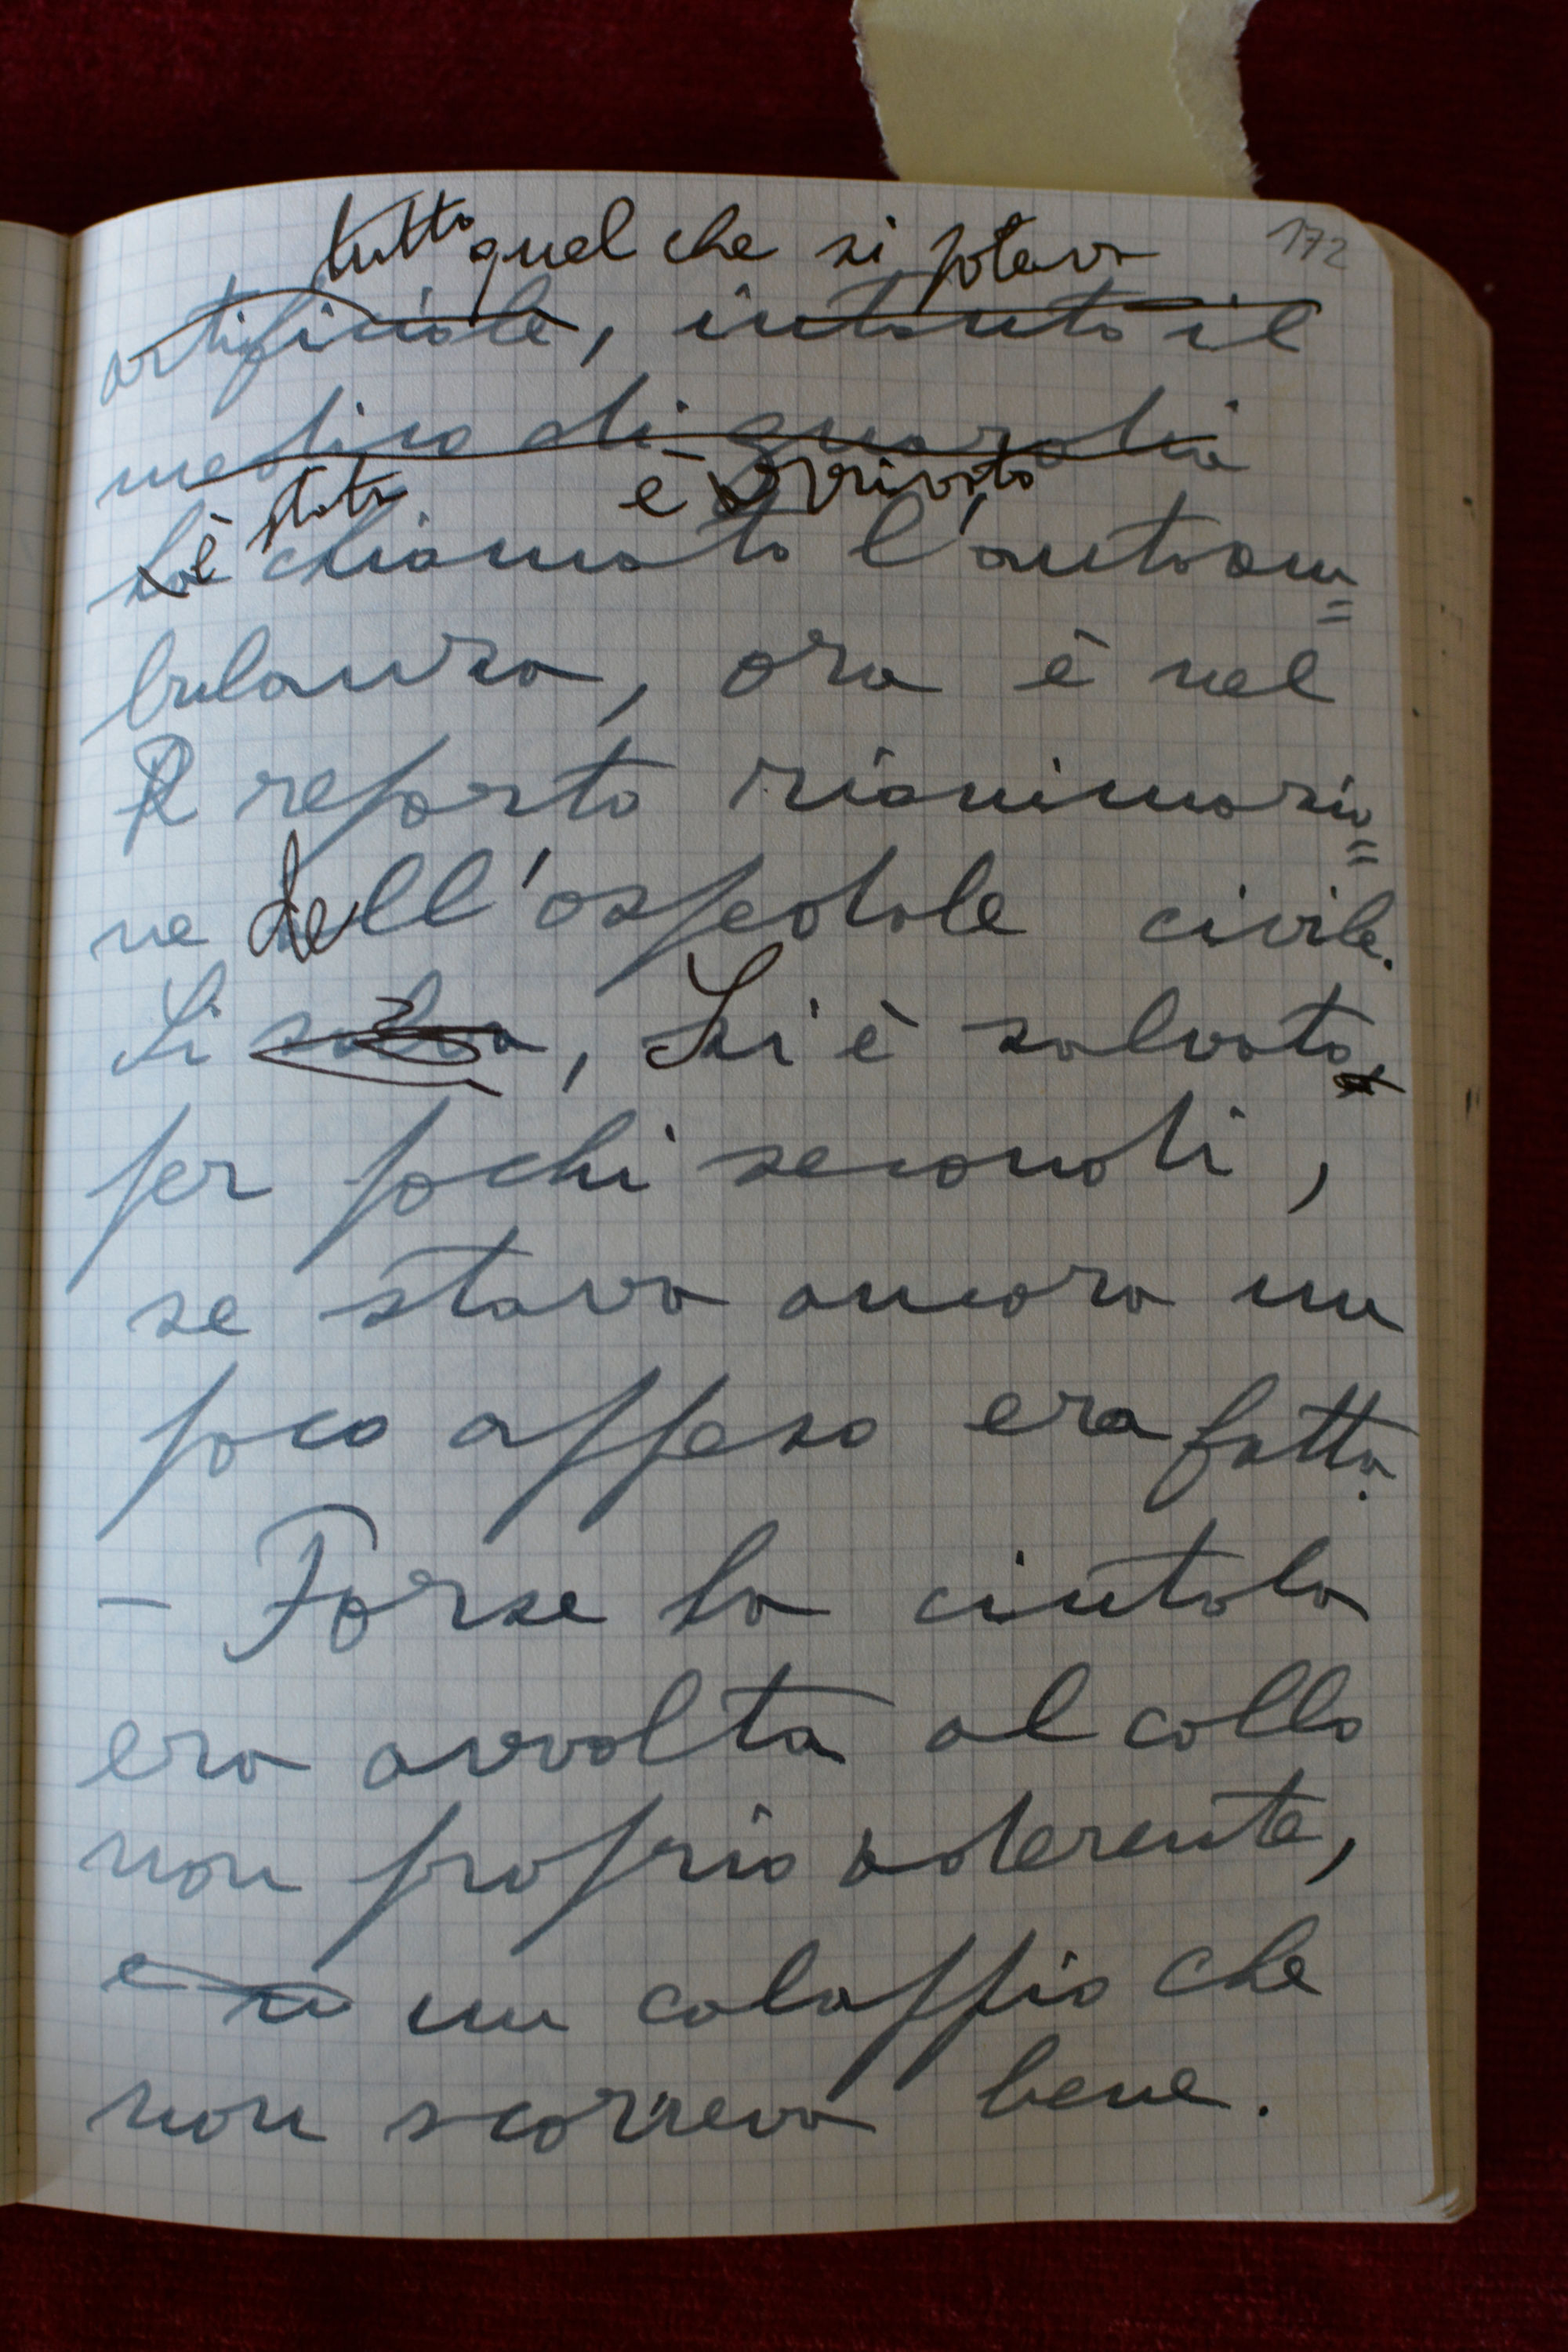 172
tutto quel che si poteva
artificiale, intanto il
medico di guardia
è stata è arrivato
ha chiamato l'autoam=
bulanza, ora è nel
reparto rianimazio=
ne dell'ospedale civile.
Si salva, Si è salvato
per pochi secondi,
se stava ancora un
poco appeso era fatta.
- Forse la cintola
era avvolta al collo
non proprio aderente,
un calappio che
non scorreva bene.